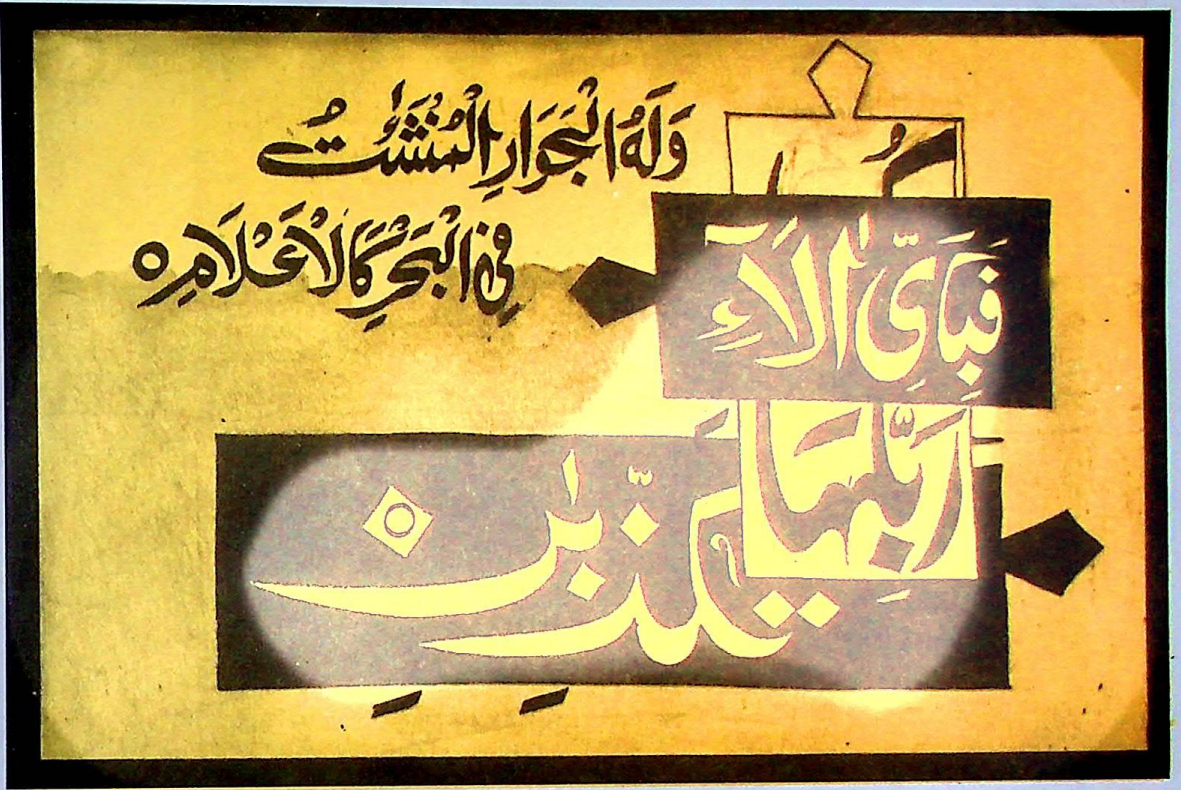 وَلَهُ الْجَوَارِ الْمُنْشَئٰتُ
فِی الْبَحْرِ كَالْاَعْلَامِ ۝
فَبِاَیِّ اٰلَآءِ
رَبِّكُمَا تُكَذِّبٰنِ ۝